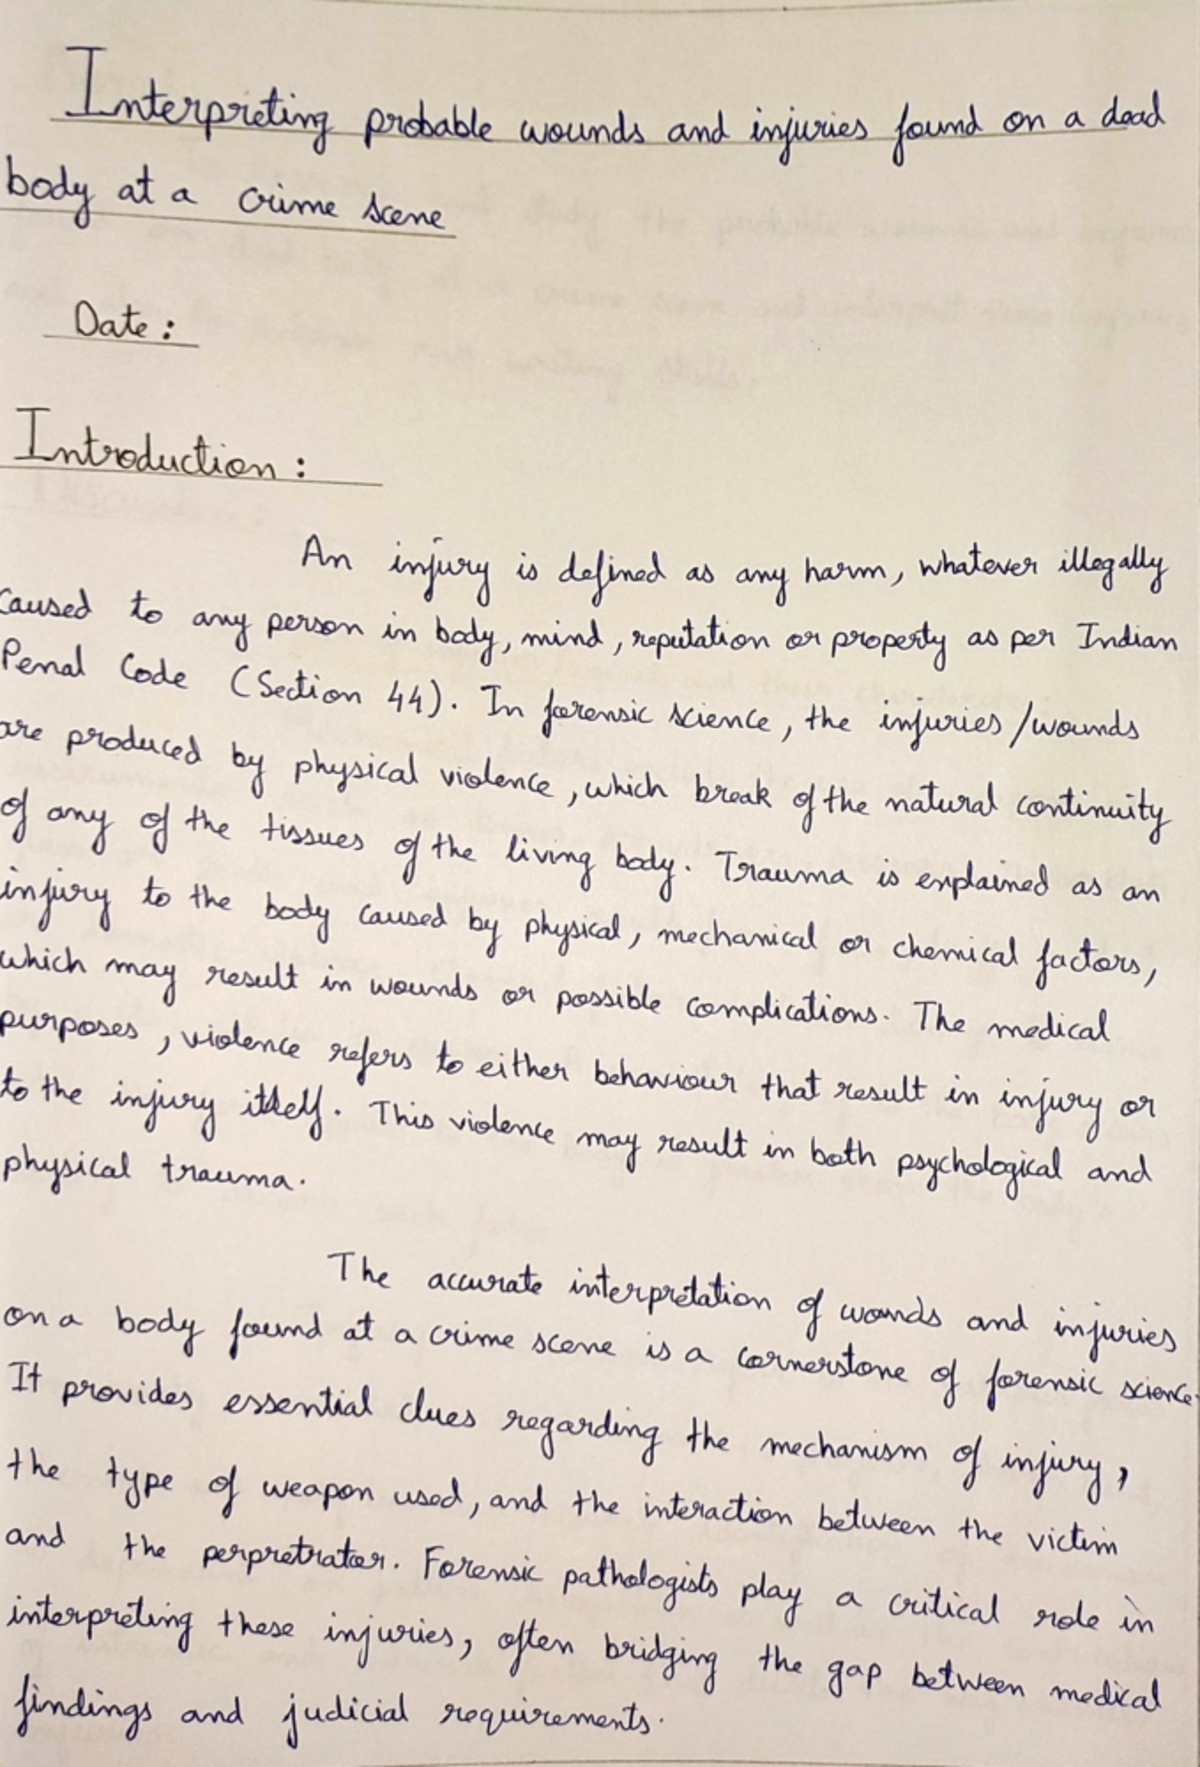 Interpreting probable wounds and injuries found on a dead
body at a crime scene
Date :
Introduction :
An injury is defined as any harm, whatever illegally
caused to any person in body, mind, reputation or property as per Indian
Penal Code (Section 44). In forensic science, the injuries/wounds
are produced by physical violence, which break of the natural continuity
of any of the tissues of the living body. Trauma is explained as an
injury to the body caused by physical, mechanical or chemical factors,
which may result in wounds or possible complications. The medical
purposes, violence refers to either behaviour that result in injury or
to the injury itself. This violence may result in both psychological and
physical trauma.
The accurate interpretation of wounds and injuries
on a body found at a crime scene is a cornerstone of forensic science.
It provides essential clues regarding the mechanism of injury,
the type of weapon used, and the interaction between the victim
and the perpretrator. Forensic pathologists play a critical role in
interpreting these injuries, often bridging the gap between medical
findings and judicial requirements.